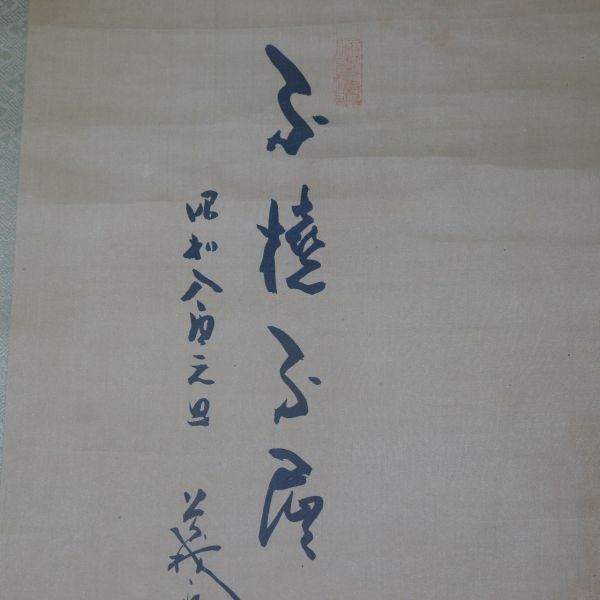 不撓不屈
昭和八酉元旦